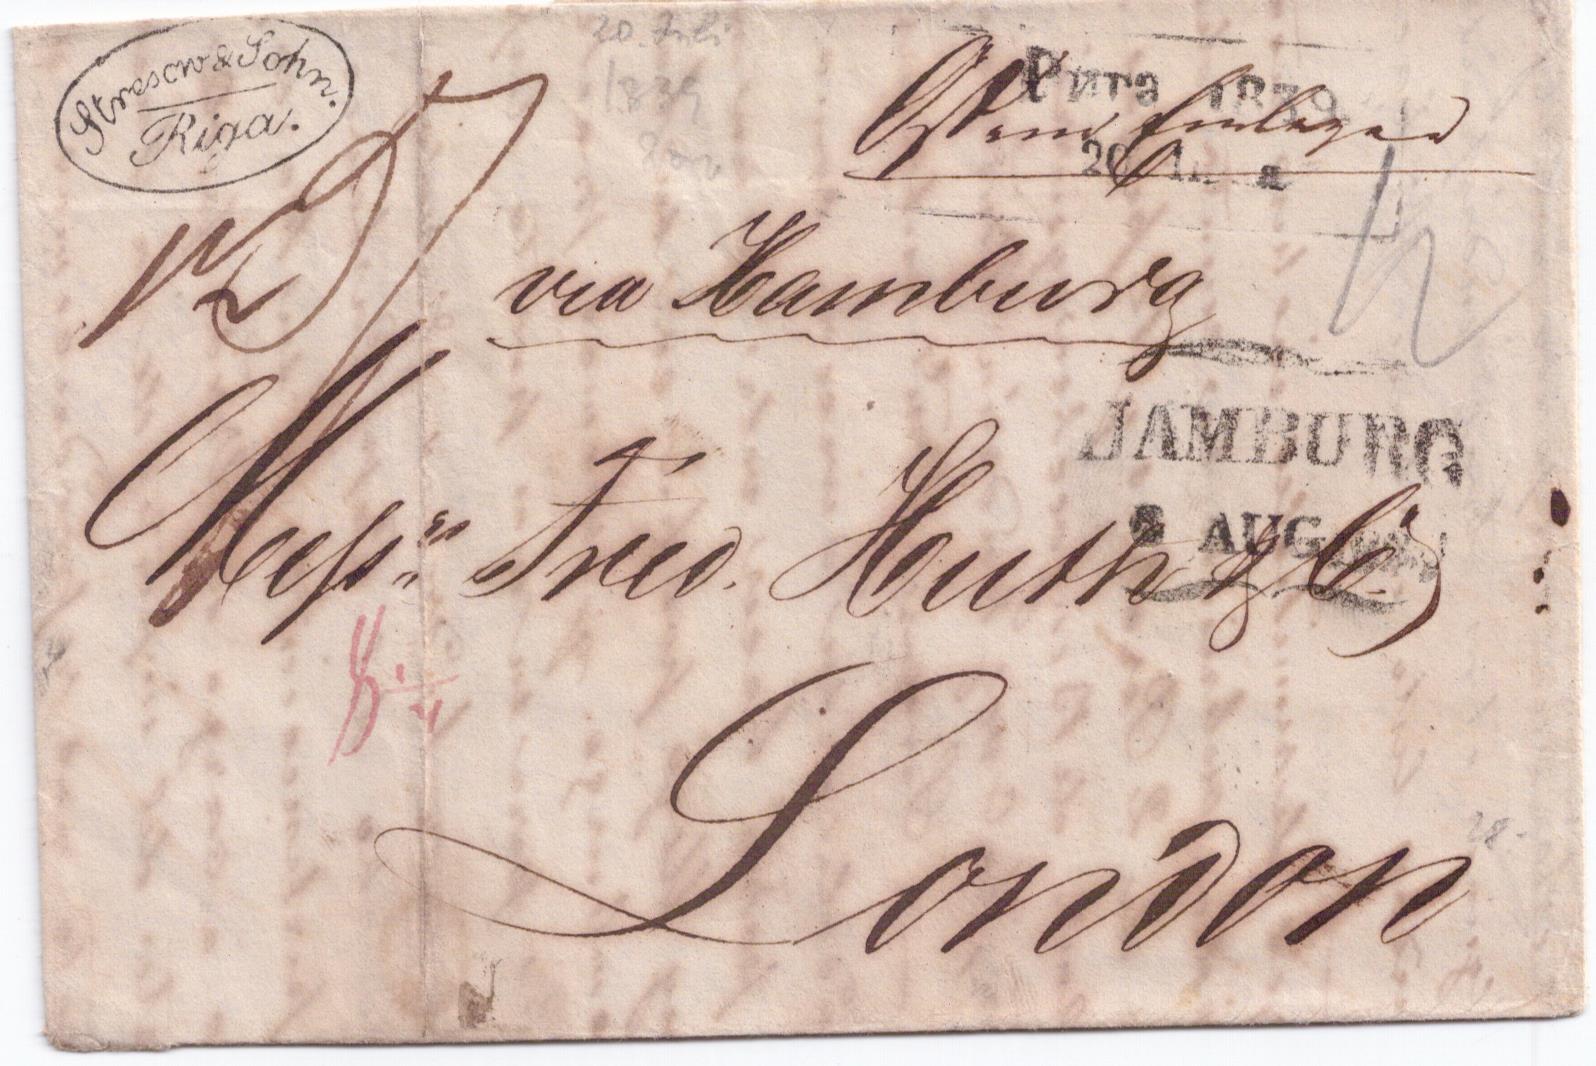 Stresow & Sohn.
Riga.
20. Juli
1839
Рига 1839
20
via Hamburg
HAMBURG
2 AUG
Messrs Fred. Huth & Co
London
28.